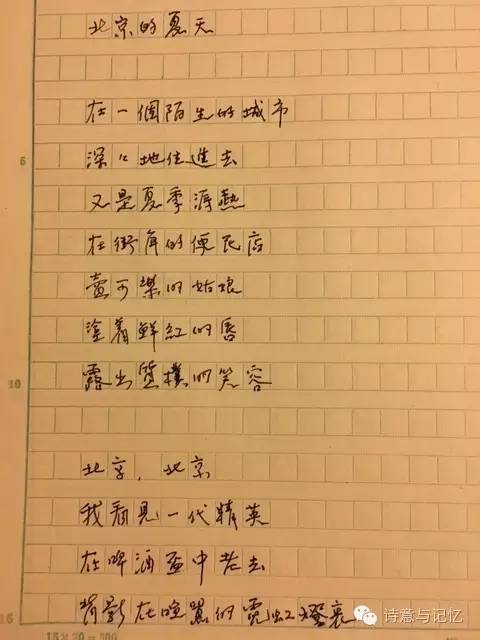 北京的夏天
在一個陌生的城市
深々地住進去
又是夏季溽熱
在街角的便民店
賣可樂的姑娘
塗着鮮紅的唇
露出質樸的笑容
北京，北京
我看見一代精英
在啤酒盃中老去
背影在喧囂的霓虹燈裏
5
10
15
15×20=300
诗意与记忆